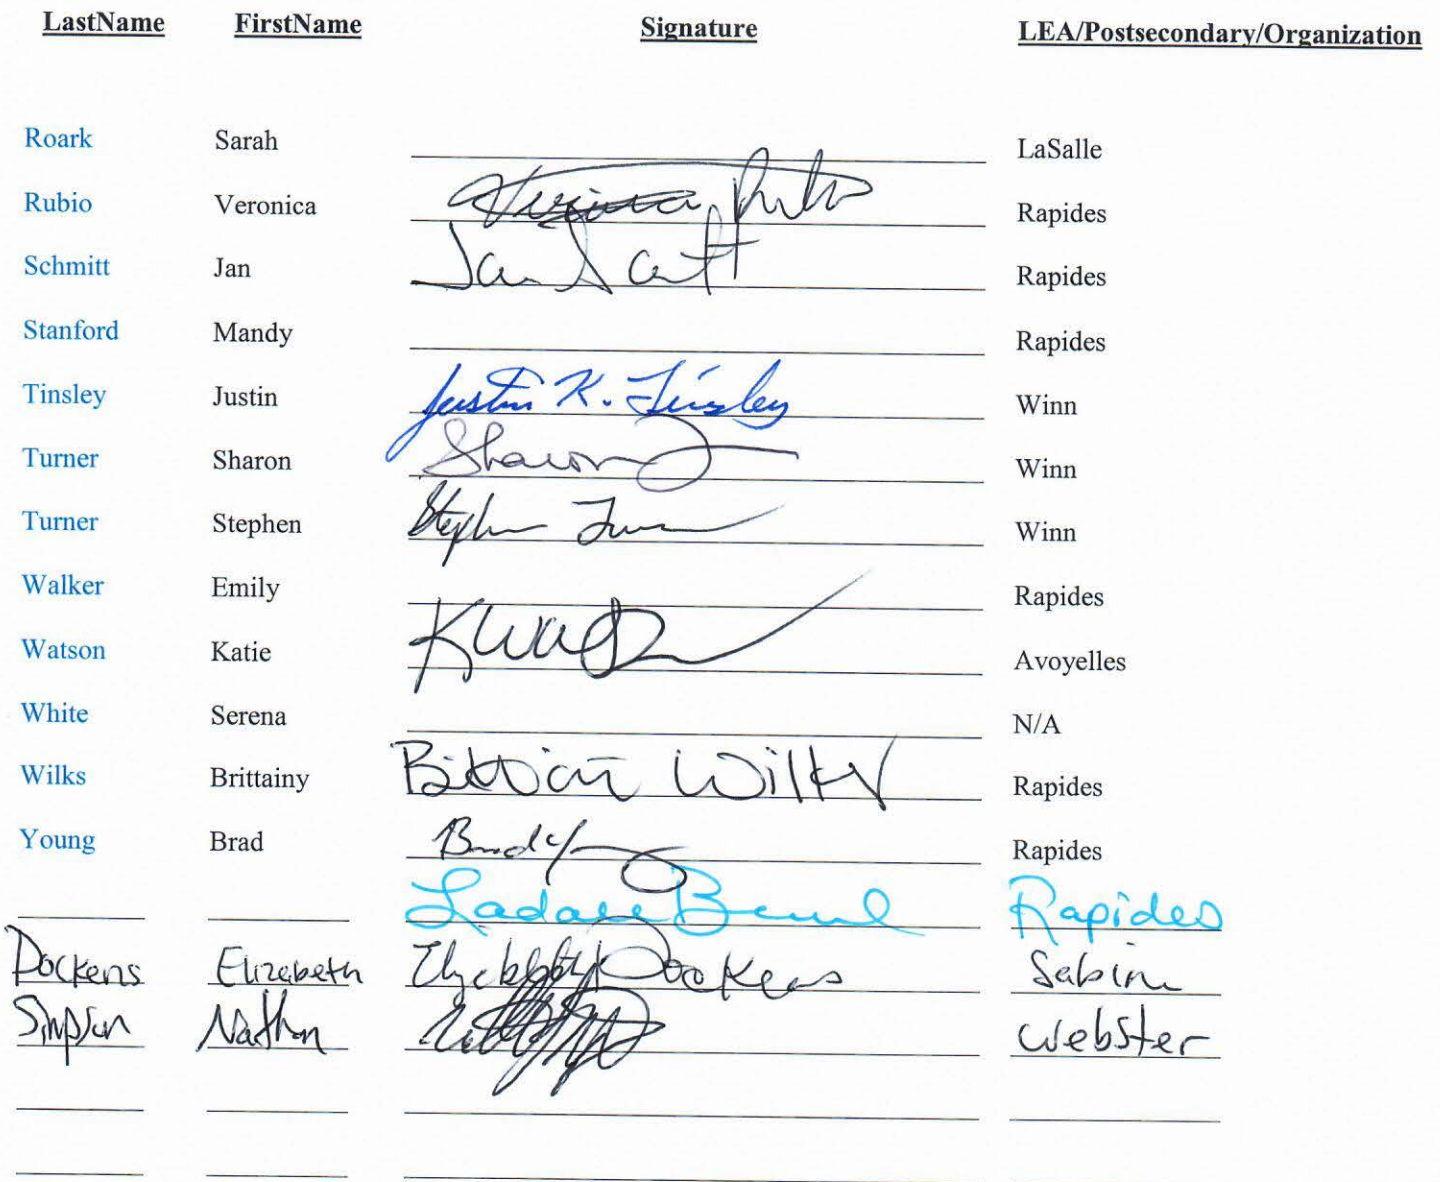 LastName FirstName Signature LEA/Postsecondary/Organization
Roark Sarah LaSalle
Rubio Veronica Rapides
Schmitt Jan Jan Rapides
Stanford Mandy Rapides
Tinsley Justin Justin K. Tinsley Winn
Turner Sharon Sharon Winn
Turner Stephen Stephen Winn
Walker Emily Rapides
Watson Katie Avoyelles
White Serena N/A
Wilks Brittainy Wilks Rapides
Young Brad Brad Rapides
Rapides
Dockens Elizabeth Dockens Sabine
Simpson Nathan Webster